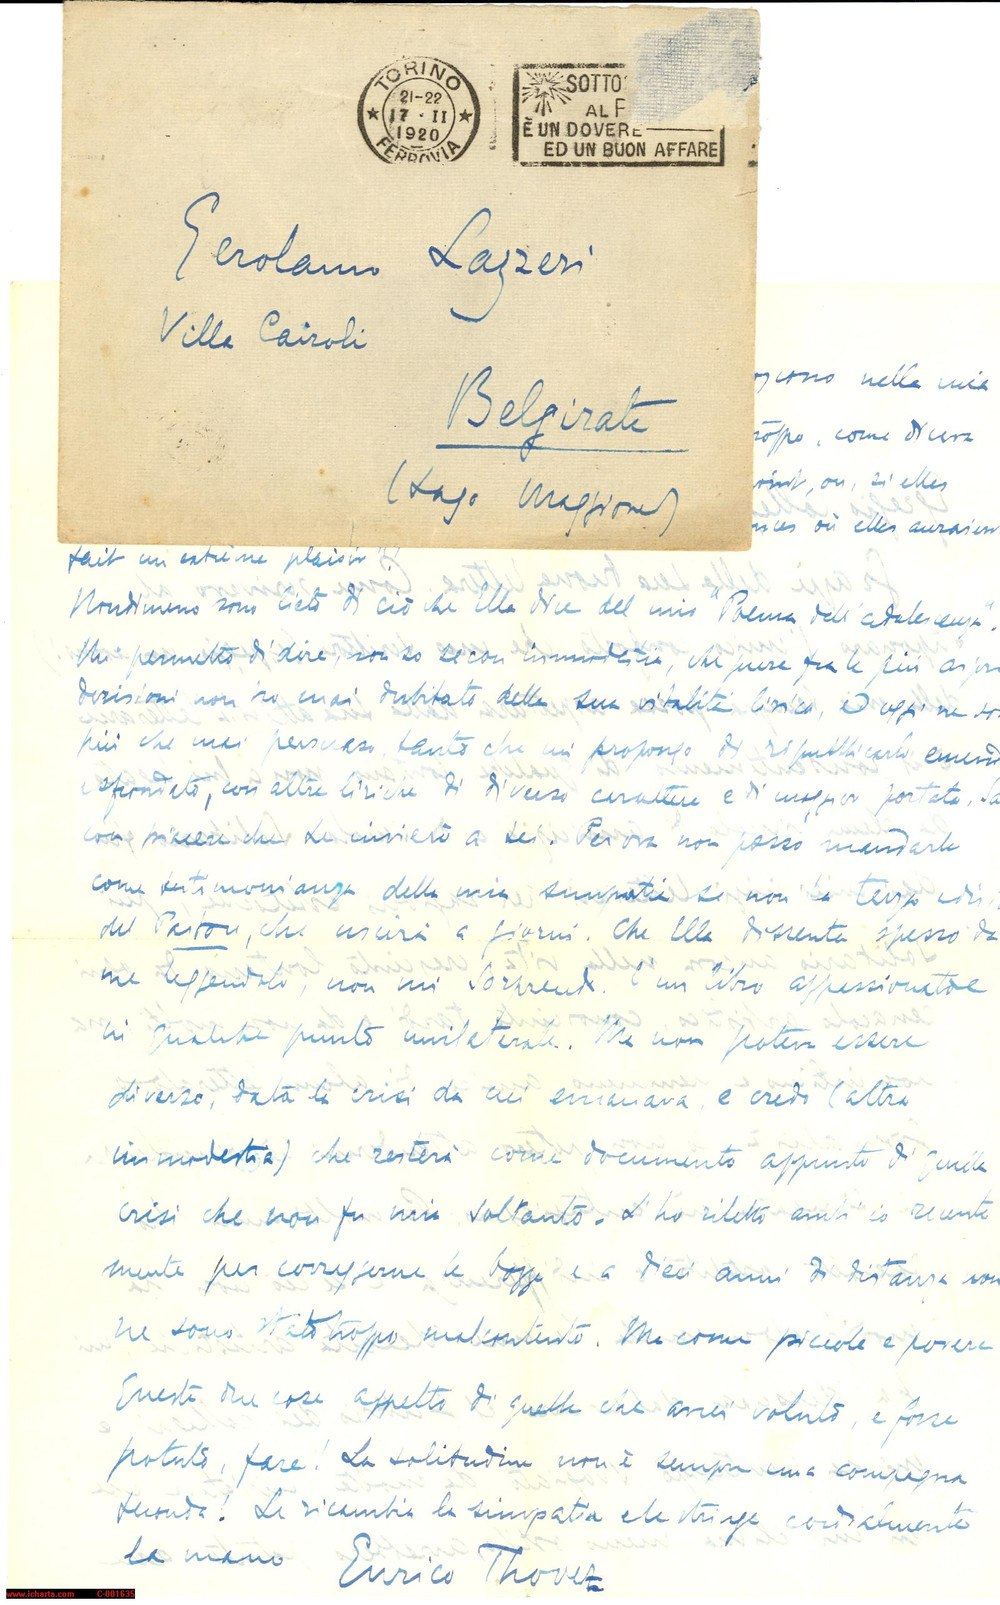 TORINO
21-22
17 · II
1920
FERROVIA
SOTTO
AL F
È UN DOVERE
ED UN BUON AFFARE
Gerolamo Lazzeri
Villa Cairoli
Belgirate
(Lago Maggiore)
nella mia
come diceva
point, ou, si elles
où elles auraient
fait un extrême plaisir"!
Nondimeno sono lieto di ciò che Ella dice del mio "Poema dell'adolescenza".
Mi permetto di dire, non so se con immodestia, che pure fra le più aspre
derisioni non ho mai dubitato della sua vitalità lirica, ed oggi ne so
più che mai persuaso, tanto che mi propongo di ripubblicarlo emend
e sfrondato, con altre liriche di diverso carattere e di maggior portata.
con piacere che Le invierò a Lei. Per ora non posso mandarle
come testimonianza della mia simpatia se non la terza edi
del Pastore, che uscirà a giorni. Che Ella dissenta spesso da
me leggendolo, non mi sorprende. È un libro appassionato e
in qualche punto unilaterale. Ma non poteva essere
diverso, data la crisi da cui emanava, e credo (altra
immodestia) che resterà come documento appunto di quella
crisi che non fu mia soltanto. L'ho riletto anch'io recente
mente per correggerne le bozze e a dieci anni di distanza non
ne sono stato troppo malcontento. Ma come piccole e povere
queste due cose appetto di quelle che avrei voluto, e forse
potuto, fare! La solitudine non è sempre una compagna
feconda! Le ricambia la simpatia e le stringe cordialmente
la mano
Enrico Thovez
www.icharta.com C-001635